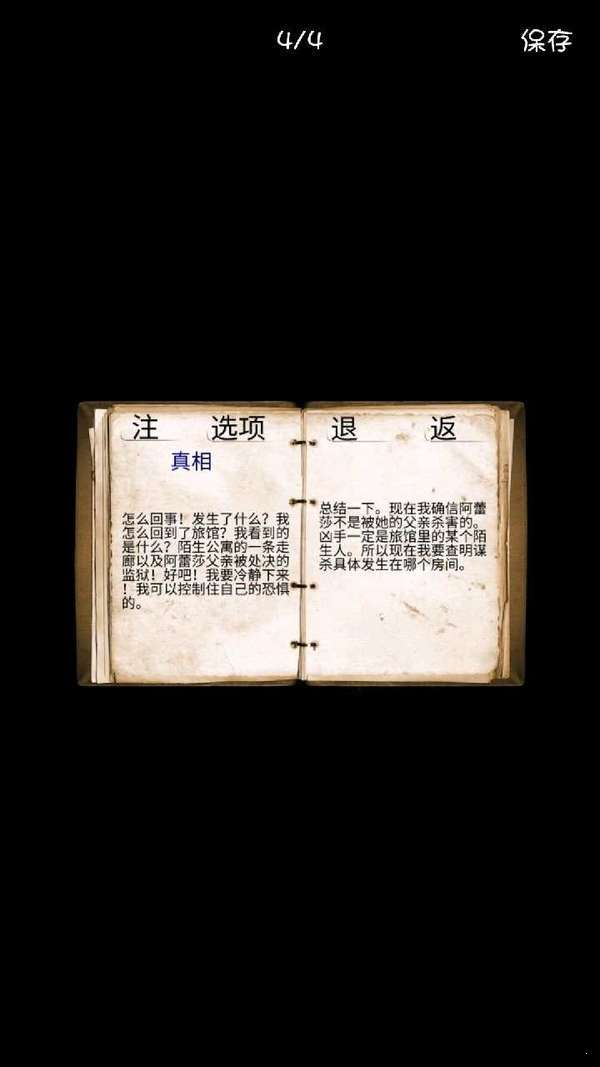 4/4
保存
注 选项 退 返
真相
怎么回事！发生了什么？我
怎么回到了旅馆？我看到的
是什么？陌生公寓的一条走
廊以及阿蕾莎父亲被处决的
监狱！好吧！我要冷静下来
！我可以控制住自己的恐惧
的。
总结一下。现在我确信阿蕾
莎不是被她的父亲杀害的。
凶手一定是旅馆里的某个陌
生人。所以现在我要查明谋
杀具体发生在哪个房间。